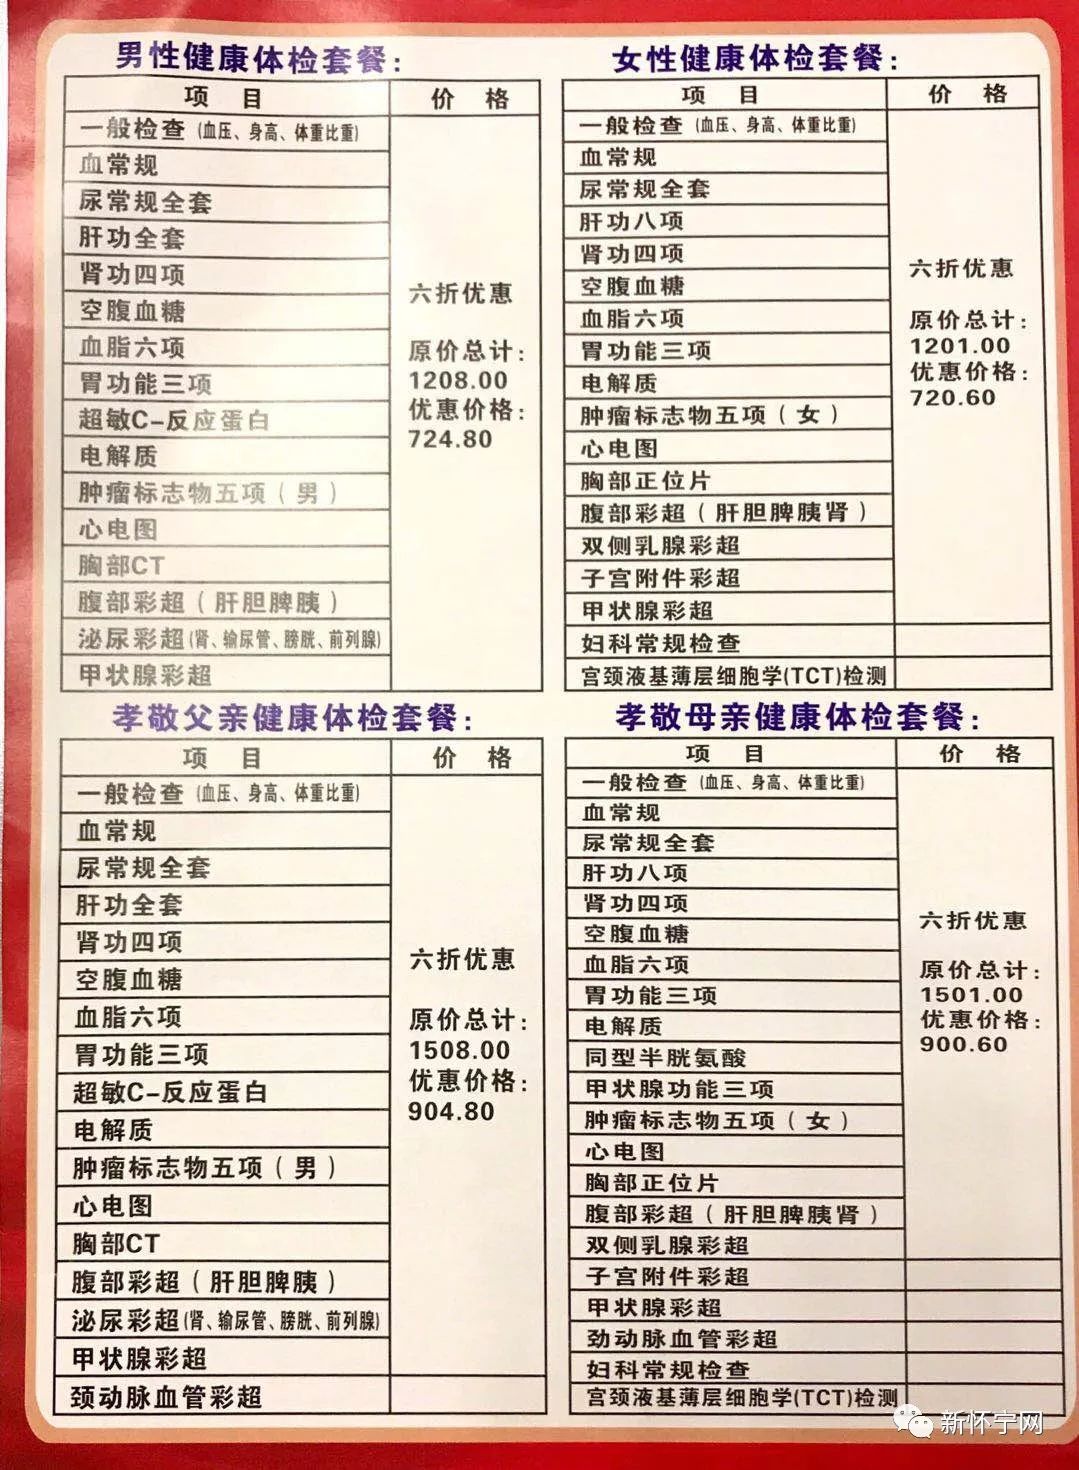 男性健康体检套餐：
项 目
价 格
一般检查（血压、身高、体重比重）
血常规
尿常规全套
肝功全套
肾功四项
空腹血糖
血脂六项
胃功能三项
超敏C-反应蛋白
电解质
肿瘤标志物五项（男）
心电图
胸部CT
腹部彩超（肝胆脾胰）
泌尿彩超（肾、输尿管、膀胱、前列腺）
甲状腺彩超
六折优惠
原价总计：
1208.00
优惠价格：
724.80
女性健康体检套餐：
项 目
价 格
一般检查（血压、身高、体重比重）
血常规
尿常规全套
肝功八项
肾功四项
空腹血糖
血脂六项
胃功能三项
电解质
肿瘤标志物五项（女）
心电图
胸部正位片
腹部彩超（肝胆脾胰肾）
双侧乳腺彩超
子宫附件彩超
甲状腺彩超
妇科常规检查
宫颈液基薄层细胞学(TCT)检测
六折优惠
原价总计：
1201.00
优惠价格：
720.60
孝敬父亲健康体检套餐：
项 目
价 格
一般检查（血压、身高、体重比重）
血常规
尿常规全套
肝功全套
肾功四项
空腹血糖
血脂六项
胃功能三项
超敏C-反应蛋白
电解质
肿瘤标志物五项（男）
心电图
胸部CT
腹部彩超（肝胆脾胰）
泌尿彩超（肾、输尿管、膀胱、前列腺）
甲状腺彩超
颈动脉血管彩超
六折优惠
原价总计：
1508.00
优惠价格：
904.80
孝敬母亲健康体检套餐：
项 目
价 格
一般检查（血压、身高、体重比重）
血常规
尿常规全套
肝功八项
肾功四项
空腹血糖
血脂六项
胃功能三项
电解质
同型半胱氨酸
甲状腺功能三项
肿瘤标志物五项（女）
心电图
胸部正位片
腹部彩超（肝胆脾胰肾）
双侧乳腺彩超
子宫附件彩超
甲状腺彩超
劲动脉血管彩超
妇科常规检查
宫颈液基薄层细胞学(TCT)检测
六折优惠
原价总计：
1501.00
优惠价格：
900.60
新怀宁网